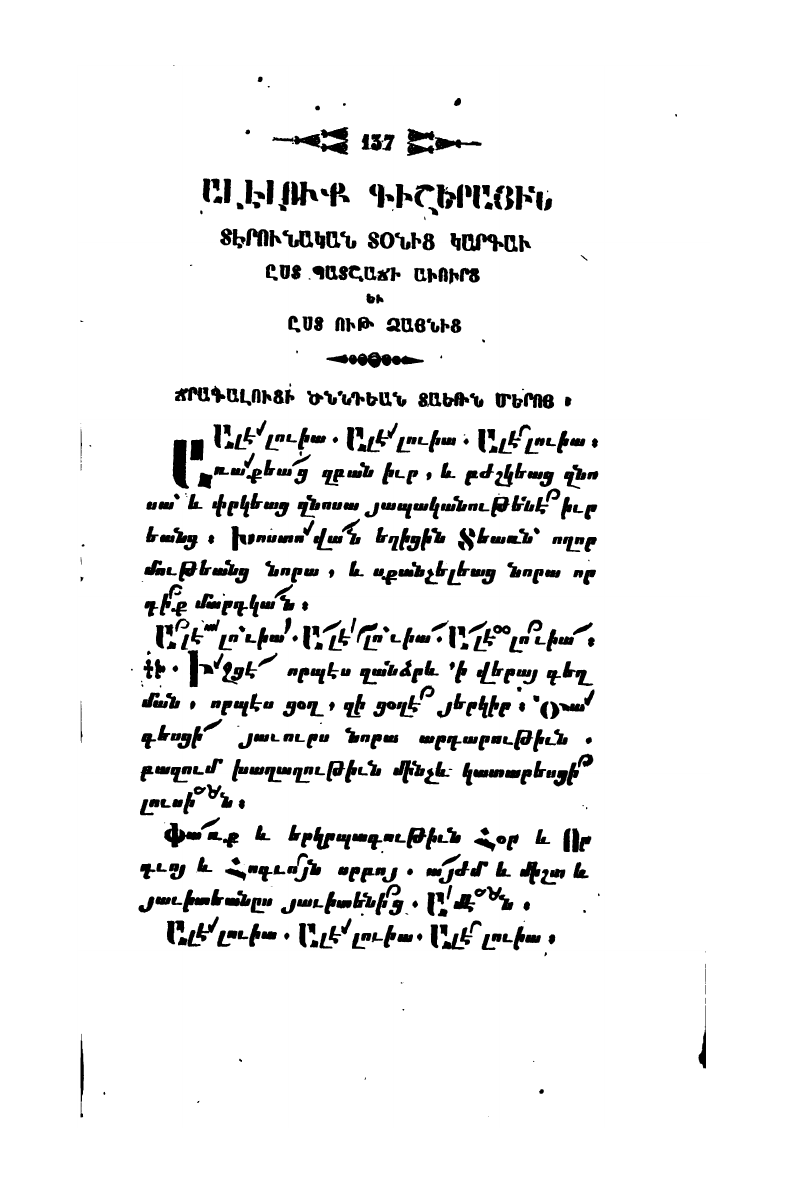 137
ԱԼԷԼՈՒՔ ԳԻՇԵՐԱՅԻՆ
ՏԷՐՈՒՆԱԿԱՆ ՏՕՆԻՑ ԿԱՐԳԱՒ
ԸՍՏ ՊԱՏՇԱՃԻ ԱՒՈՒՐՑ
ԵՒ
ԸՍՏ ՈՒԹ ՁԱՅՆԻՑ
ՃՐԱԳԱԼՈՒՑԻ ԾՆՆԴԵԱՆ ՏԵԱՌՆ ՄԵՐՈՅ ։
Ալէլուիա . Ալէլուիա . Ալէլուիա ։
Առաքեաց զբան իւր , և բժշկեաց զնո
սա՝ և փրկեաց զնոսա յապականութենէ իւր
եանց ։ Խոստովան եղիցին Տեառն՝ ողոր
մութեանց նորա , և սքանչելեաց նորա որ
դիք մարդկան ։
Ալէլո՛ւիա . Ալէլո՛ւիա . Ալէլուիա ։
ԳԻ . Իջցէ որպէս զանձրև ՚ի վերայ գեղ
ման , որպէս ցօղ , զի ցօղէ յերկիր ։ Ծա
գեսցի յաւուրս նորա արդարութիւն .
բազում խաղաղութիւն մինչև կատարեսցի
լուսին ։
Փառք և երկրպագութիւն Հօր և Որ
դւոյ և Հոգւոյն սրբոյ . այժմ և միշտ և
յաւիտեանըս յաւիտենից . Ամէն ։
Ալէլուիա . Ալէլուիա . Ալէլուիա ։